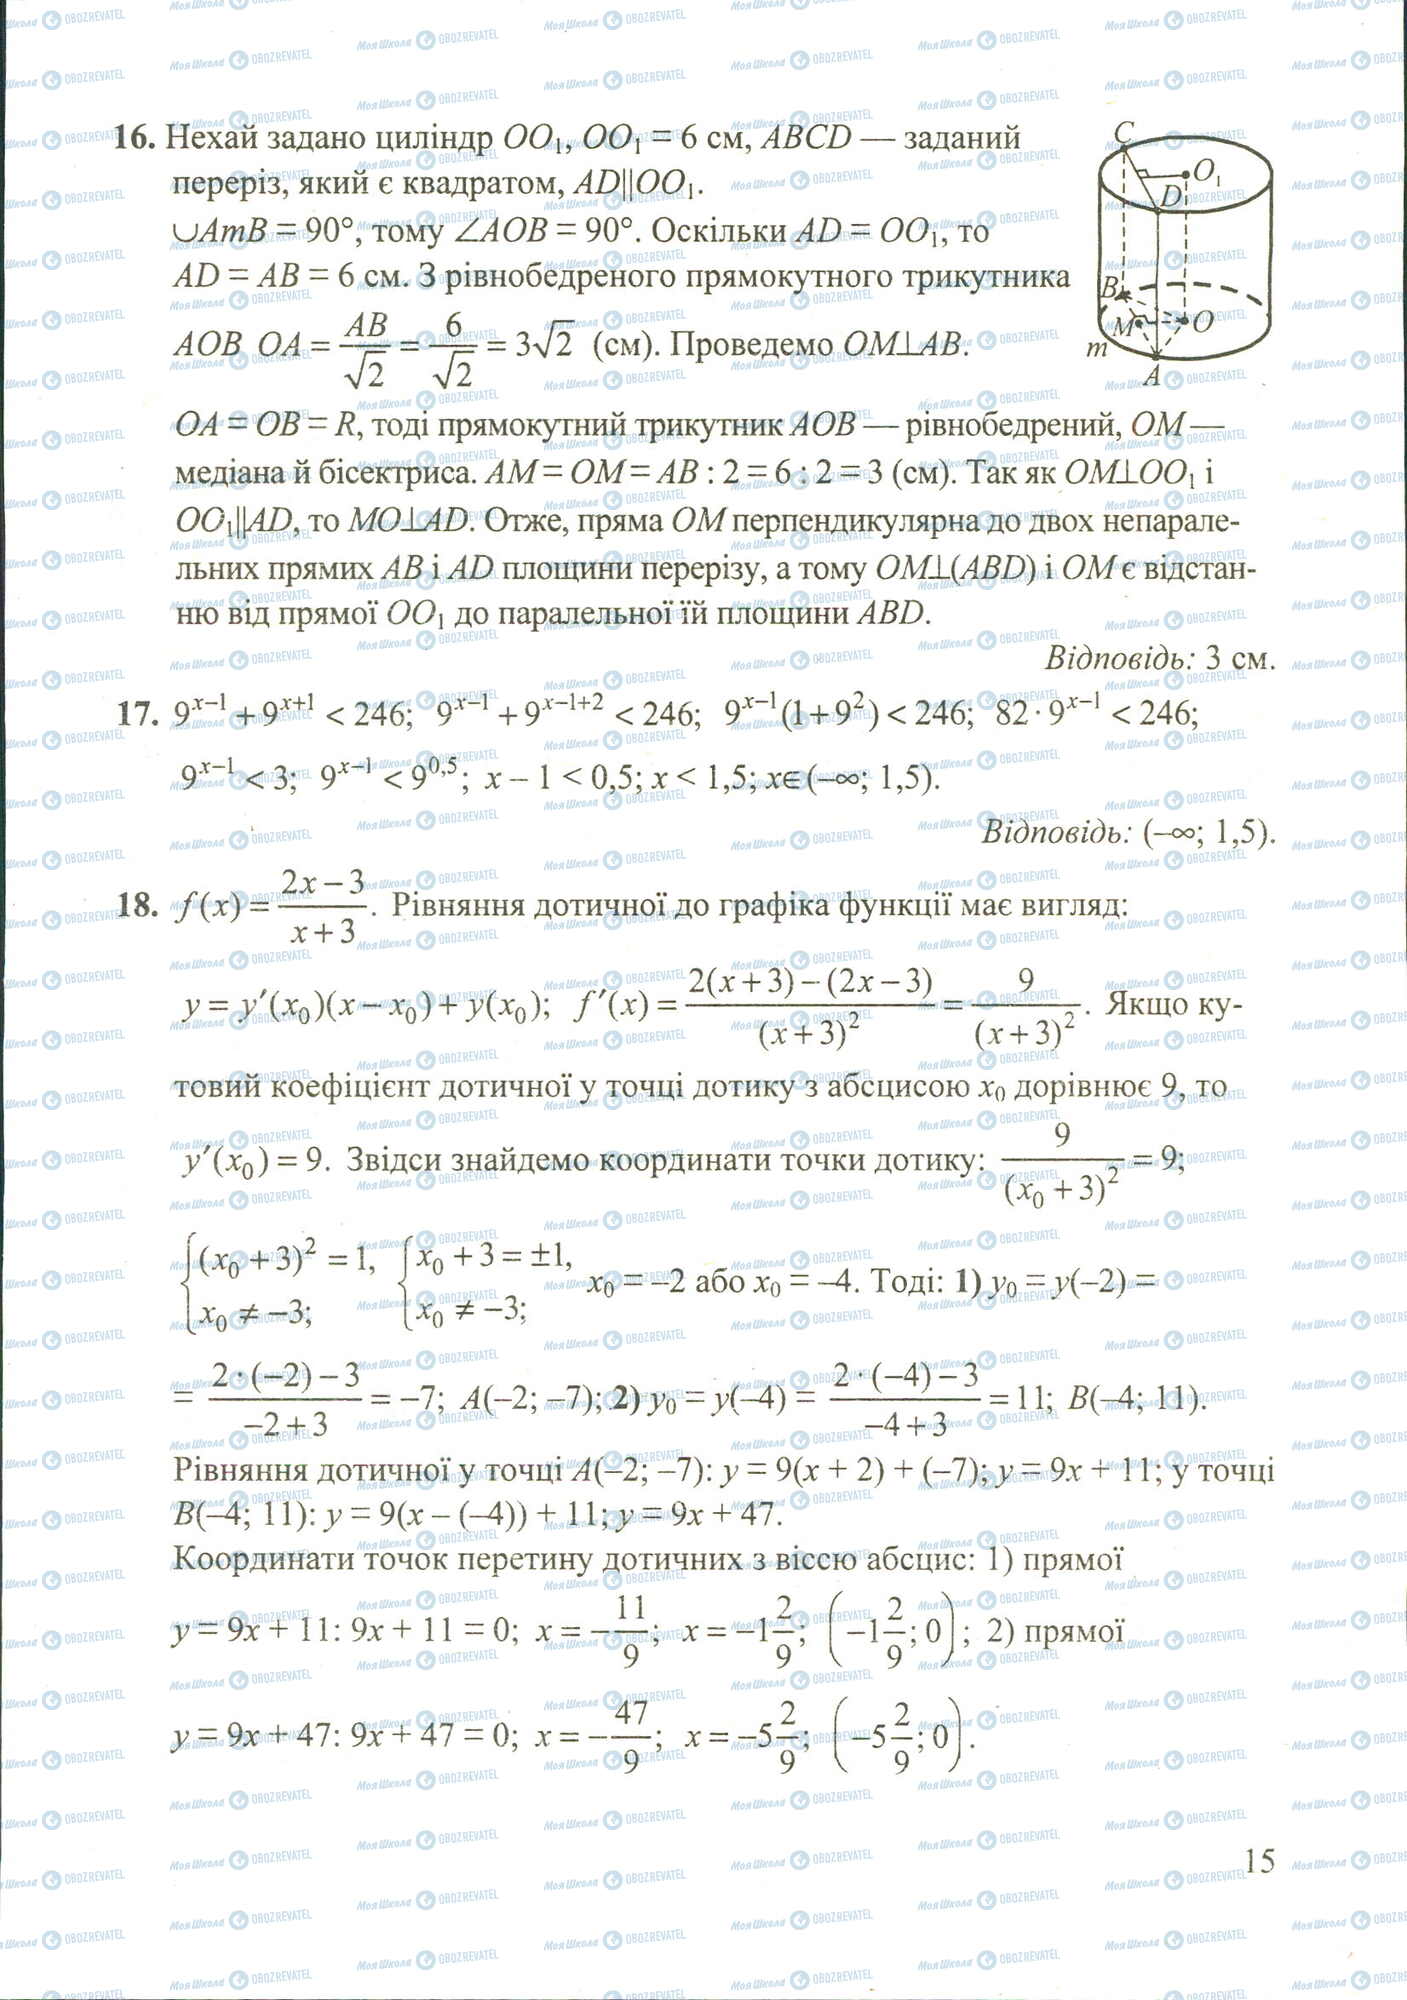 16. Нехай задано циліндр OO₁, OO₁ = 6 см, ABCD — заданий
переріз, який є квадратом, AD||OO₁.
∪AmB = 90°, тому ∠AOB = 90°. Оскільки AD = OO₁, то
AD = AB = 6 см. З рівнобедреного прямокутного трикутника
AOB OA = AB/√2 = 6/√2 = 3√2 (см). Проведемо OM⊥AB.
OA = OB = R, тоді прямокутний трикутник AOB — рівнобедрений, OM —
медіана й бісектриса. AM = OM = AB : 2 = 6 : 2 = 3 (см). Так як OM⊥OO₁ і
OO₁||AD, то MO⊥AD. Отже, пряма OM перпендикулярна до двох непарале-
льних прямих AB і AD площини перерізу, а тому OM⊥(ABD) і OM є відстан-
ню від прямої OO₁ до паралельної їй площини ABD.
Відповідь: 3 см.
C
O₁
D
B
M
O
m
A
17. 9^(x−1) + 9^(x+1) < 246; 9^(x−1) + 9^(x−1+2) < 246; 9^(x−1)(1+9²) < 246; 82·9^(x−1) < 246;
9^(x−1) < 3; 9^(x−1) < 9^(0,5); x − 1 < 0,5; x < 1,5; x∈(−∞; 1,5).
Відповідь: (−∞; 1,5).
18. f(x) = (2x−3)/(x+3). Рівняння дотичної до графіка функції має вигляд:
y = y′(x₀)(x − x₀) + y(x₀); f′(x) = (2(x+3)−(2x−3))/(x+3)² = 9/(x+3)². Якщо ку-
товий коефіцієнт дотичної у точці дотику з абсцисою x₀ дорівнює 9, то
y′(x₀) = 9. Звідси знайдемо координати точки дотику: 9/(x₀+3)² = 9;
{(x₀+3)² = 1, x₀ ≠ −3; {x₀+3 = ±1, x₀ ≠ −3; x₀ = −2 або x₀ = −4. Тоді: 1) y₀ = y(−2) =
= (2·(−2)−3)/(−2+3) = −7; A(−2; −7); 2) y₀ = y(−4) = (2·(−4)−3)/(−4+3) = 11; B(−4; 11).
Рівняння дотичної у точці A(−2; −7): y = 9(x + 2) + (−7); y = 9x + 11; у точці
B(−4; 11): y = 9(x − (−4)) + 11; y = 9x + 47.
Координати точок перетину дотичних з віссю абсцис: 1) прямої
y = 9x + 11: 9x + 11 = 0; x = −11/9; x = −1 2/9; (−1 2/9; 0); 2) прямої
y = 9x + 47: 9x + 47 = 0; x = −47/9; x = −5 2/9; (−5 2/9; 0).
15
Моя Школа OBOZREVATEL